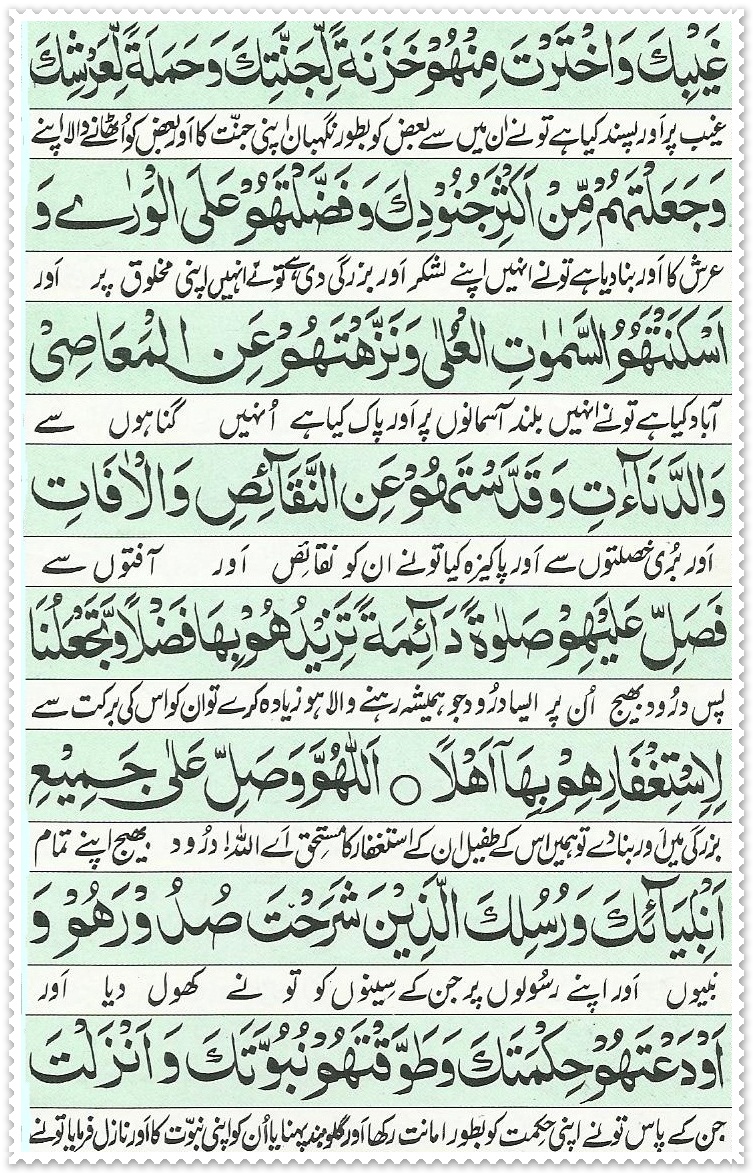 غَيْبِكَ وَاخْتَرْتَ مِنْهُمْ خَزَنَةً لِّجَنَّتِكَ وَحَمَلَةً لِّعَرْشِكَ
غیب پر اور پسند کیا ہے تو نے ان میں سے بعض کو بطور نگہبان اپنی جنّت کا اور بعض کو اُٹھانے والا اپنے
وَجَعَلْتَهُمْ مِّنْ اَكْثَرِ جُنُوْدِكَ وَفَضَّلْتَهُمْ عَلَى الْوَرٰے وَ
عرش کا اور بنا دیا ہے تو نے انہیں اپنے لشکر اور بزرگی دی ہے تو نے انہیں اپنی مخلوق پر اور
اَسْكَنْتَهُمُ السَّمٰوٰتِ الْعُلٰى وَنَزَّهْتَهُمْ عَنِ الْمَعَاصِىْ
آباد کیا ہے تو نے انہیں بلند آسمانوں پر اور پاک کیا ہے اُنہیں گناہوں سے
وَالدَّنَآءٰتِ وَقَدَّسْتَهُمْ عَنِ النَّقَآئِصِ وَالْاٰفَاتِ
اور بُری خصلتوں سے اور پاکیزہ کیا تو نے ان کو نقائص اور آفتوں سے
فَصَلِّ عَلَيْهِمْ صَلٰوةً دَآئِمَةً تَزِيْدُهُمْ بِهَا فَضْلًا وَّتَجْعَلُنَا
پس درود بھیج اُن پر ایسا درود جو ہمیشہ رہنے والا ہو زیادہ کرے تو ان کو اس کی برکت سے
لِاِسْتِغْفَارِهِمْ بِهَآ اَهْلًا ○ اَللّٰهُمَّ وَصَلِّ عَلٰى جَمِيْعِ
بزرگی میں اور بنا دے تو ہمیں اس کے طفیل ان کے استغفار کا مستحق اے اللہ! درود بھیج اپنے تمام
اَنْۢبِيَآئِكَ وَرُسُلِكَ الَّذِيْنَ شَرَحْتَ صُدُوْرَهُمْ وَ
نبیوں اور اپنے رسُولوں پر جن کے سِینوں کو تو نے کھول دیا اور
اَوْدَعْتَهُمْ حِكْمَتَكَ وَطَوَّقْتَهُمْ نُبُوَّتَكَ وَاَنْزَلْتَ
جن کے پاس تو نے اپنی حکمت کو بطور امانت رکھا اور گلوبند پہنایا اُن کو اپنی نبوّت کا اور نازل فرمایا تو نے